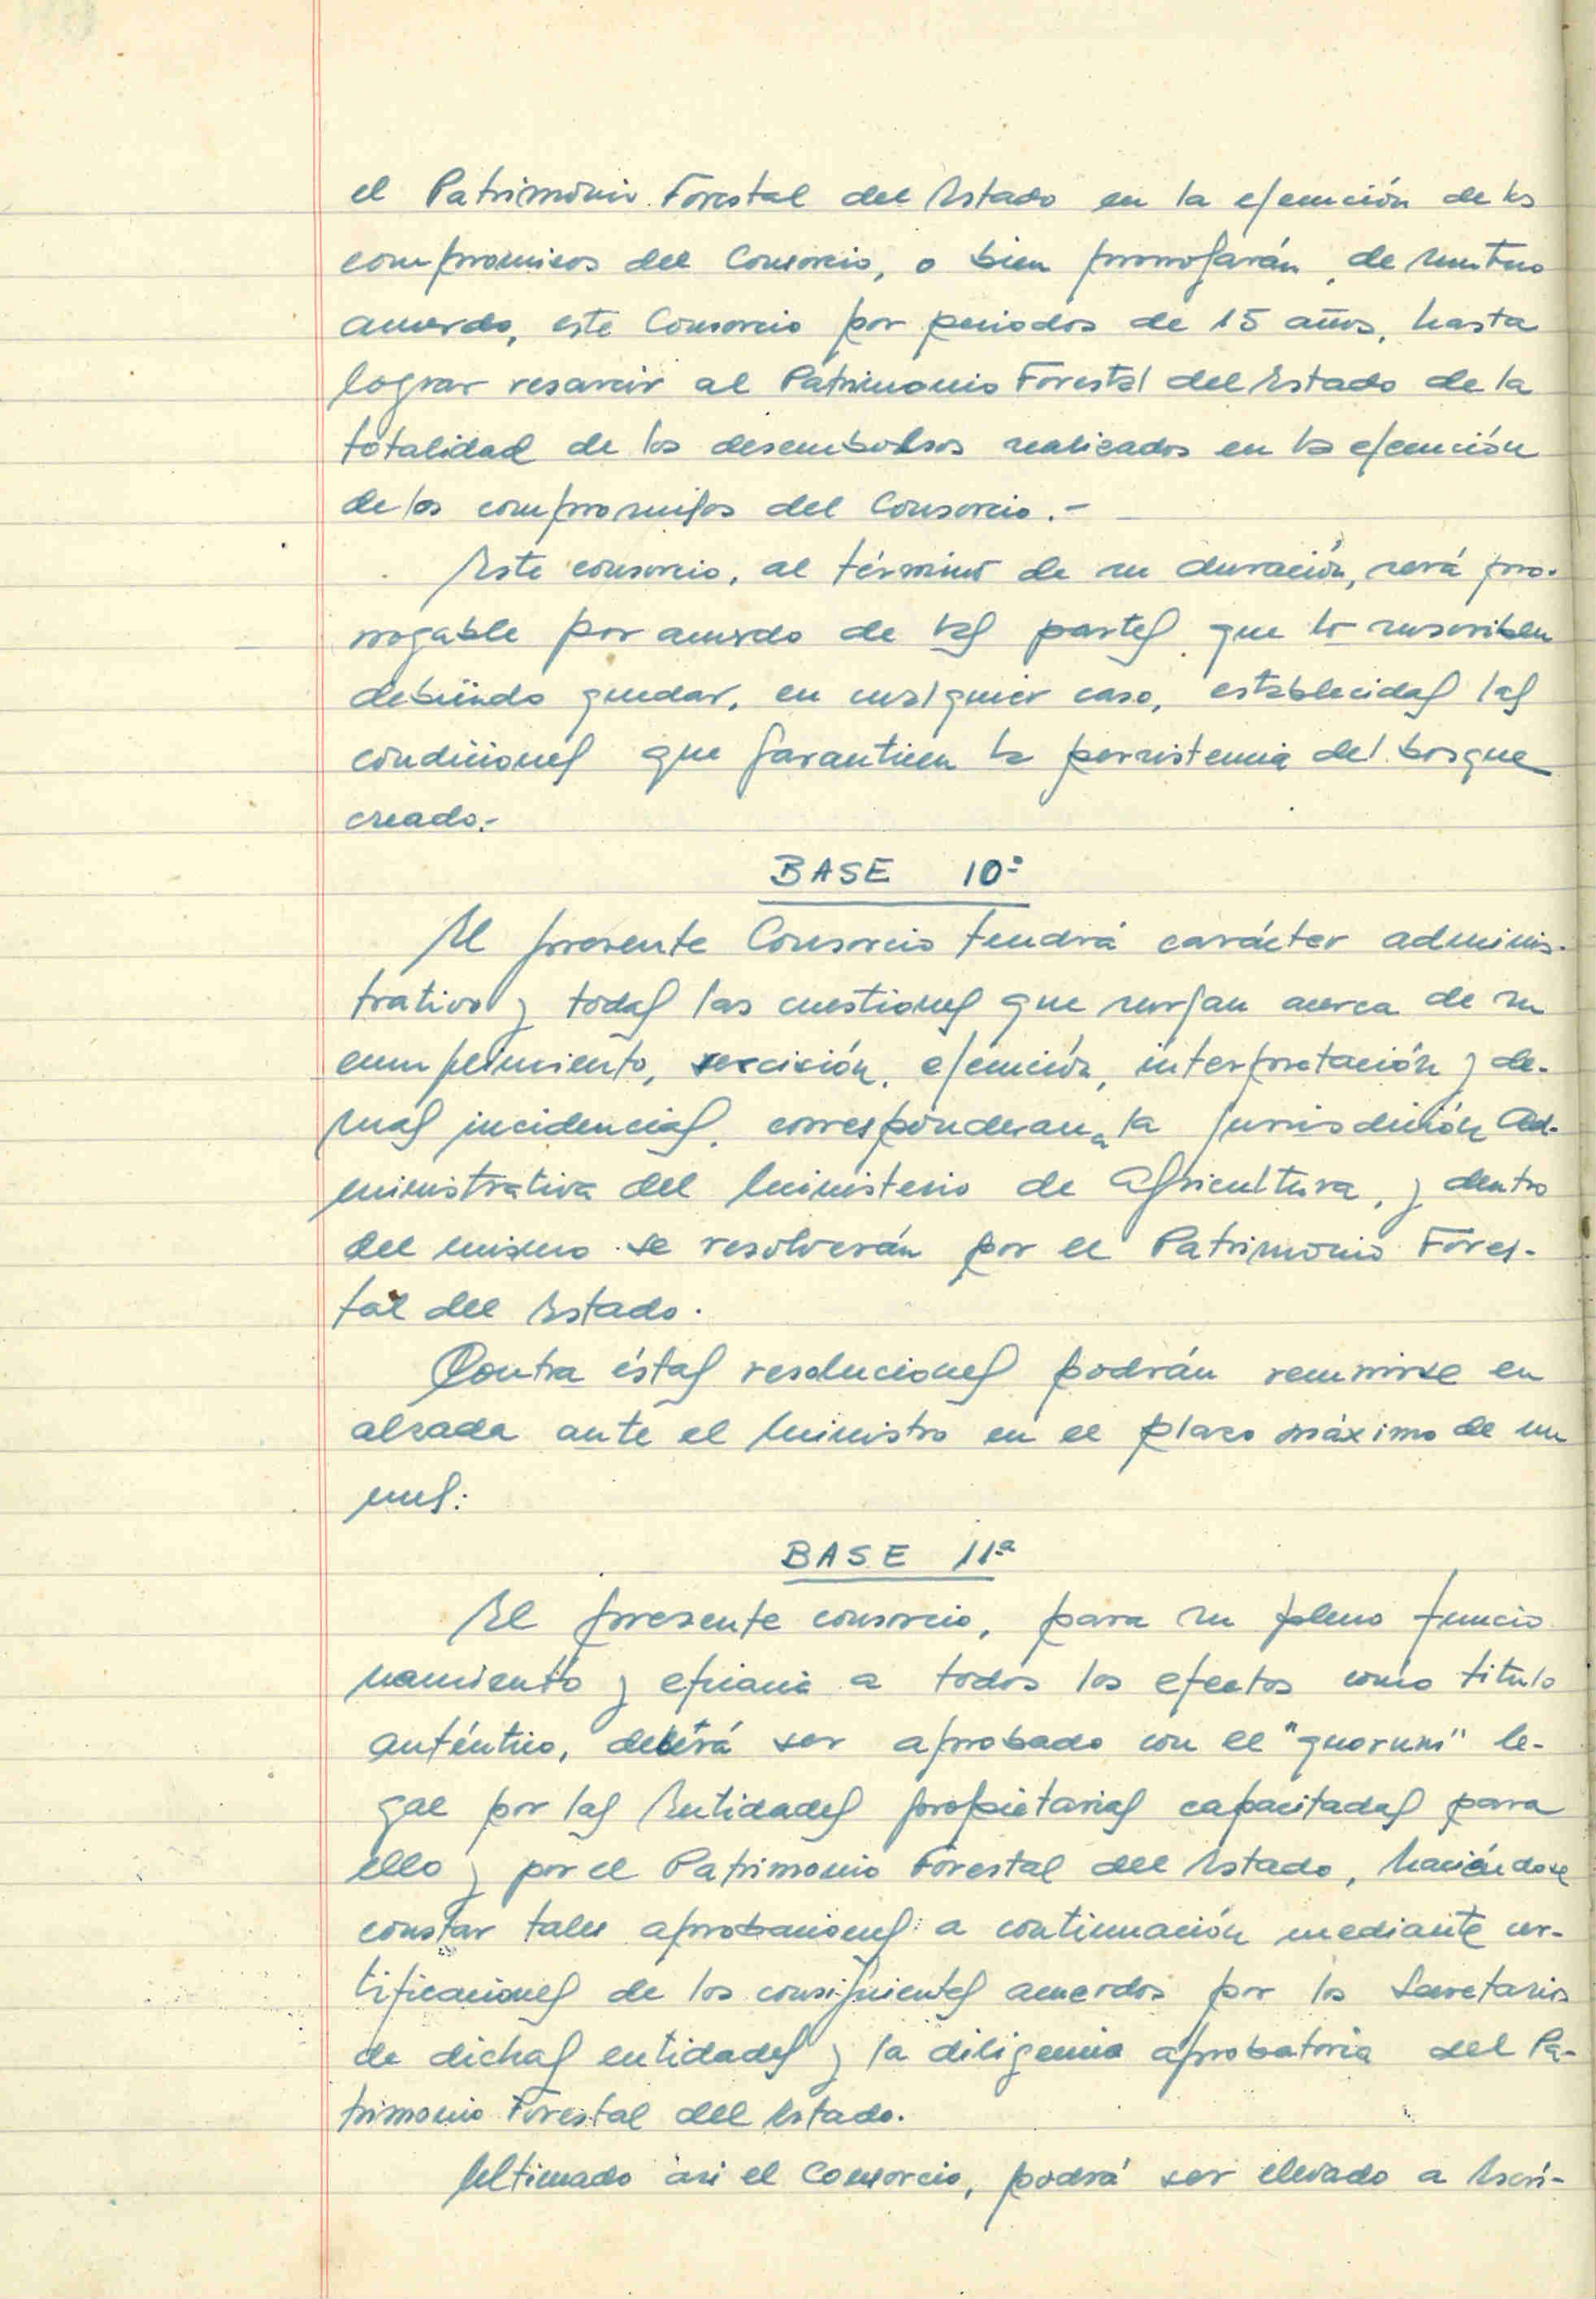 el Patrimonio Forestal del Estado en la ejecución de los
compromisos del Consorcio, o bien prorrogarán, de mutuo
acuerdo, este Consorcio por periodos de 15 años, hasta
lograr resarcir al Patrimonio Forestal del Estado de la
totalidad de los desembolsos realizados en la ejecución
de los compromisos del Consorcio.-
Este consorcio, al término de su duración, será pro-
rrogable por acuerdo de las partes que lo suscriben
debiendo quedar, en cualquier caso, establecidas las
condiciones que garanticen la persistencia del bosque
creado.-
BASE 10ª
El presente Consorcio tendrá carácter adminis-
trativo y todas las cuestiones que surjan acerca de su
cumplimiento, rescisión, ejecución, interpretación y de-
mas incidencias, corresponderan a la jurisdicción Ad-
ministrativa del Ministerio de Agricultura, y dentro
del mismo se resolverán por el Patrimonio Fores-
tal del Estado.
Contra éstas resoluciones podrán recurrirse en
alzada ante el Ministro en el plazo máximo de un
mes.
BASE 11ª
El presente consorcio, para su pleno funcio
namiento y eficacia a todos los efectos como titulo
auténtico, deberá ser aprobado con el "quorum" le-
gal por las Entidades propietarias capacitadas para
ello y por el Patrimonio Forestal del Estado, haciéndose
constar tales aprobaciones a continuación mediante cer-
tificaciones de los consiguientes acuerdos por los Secretarios
de dichas entidades y la diligencia aprobatoria del Pa-
trimonio Forestal del Estado.
Ultimado asi el Consorcio, podrá ser elevado a Escri-